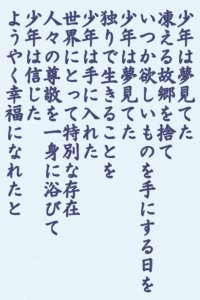 少年は夢見てた
凍える故郷を捨て
いつか欲しいものを手にする日を
少年は夢見てた
独りで生きることを
少年は手に入れた
世界にとって特別な存在
人々の尊敬を一身に浴びて
少年は信じた
ようやく幸福になれたと